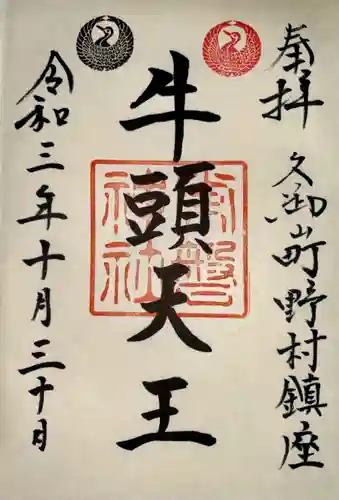 奉拝
久御山町野村鎮座
牛頭天王
常磐神社
令和三年十月三十日